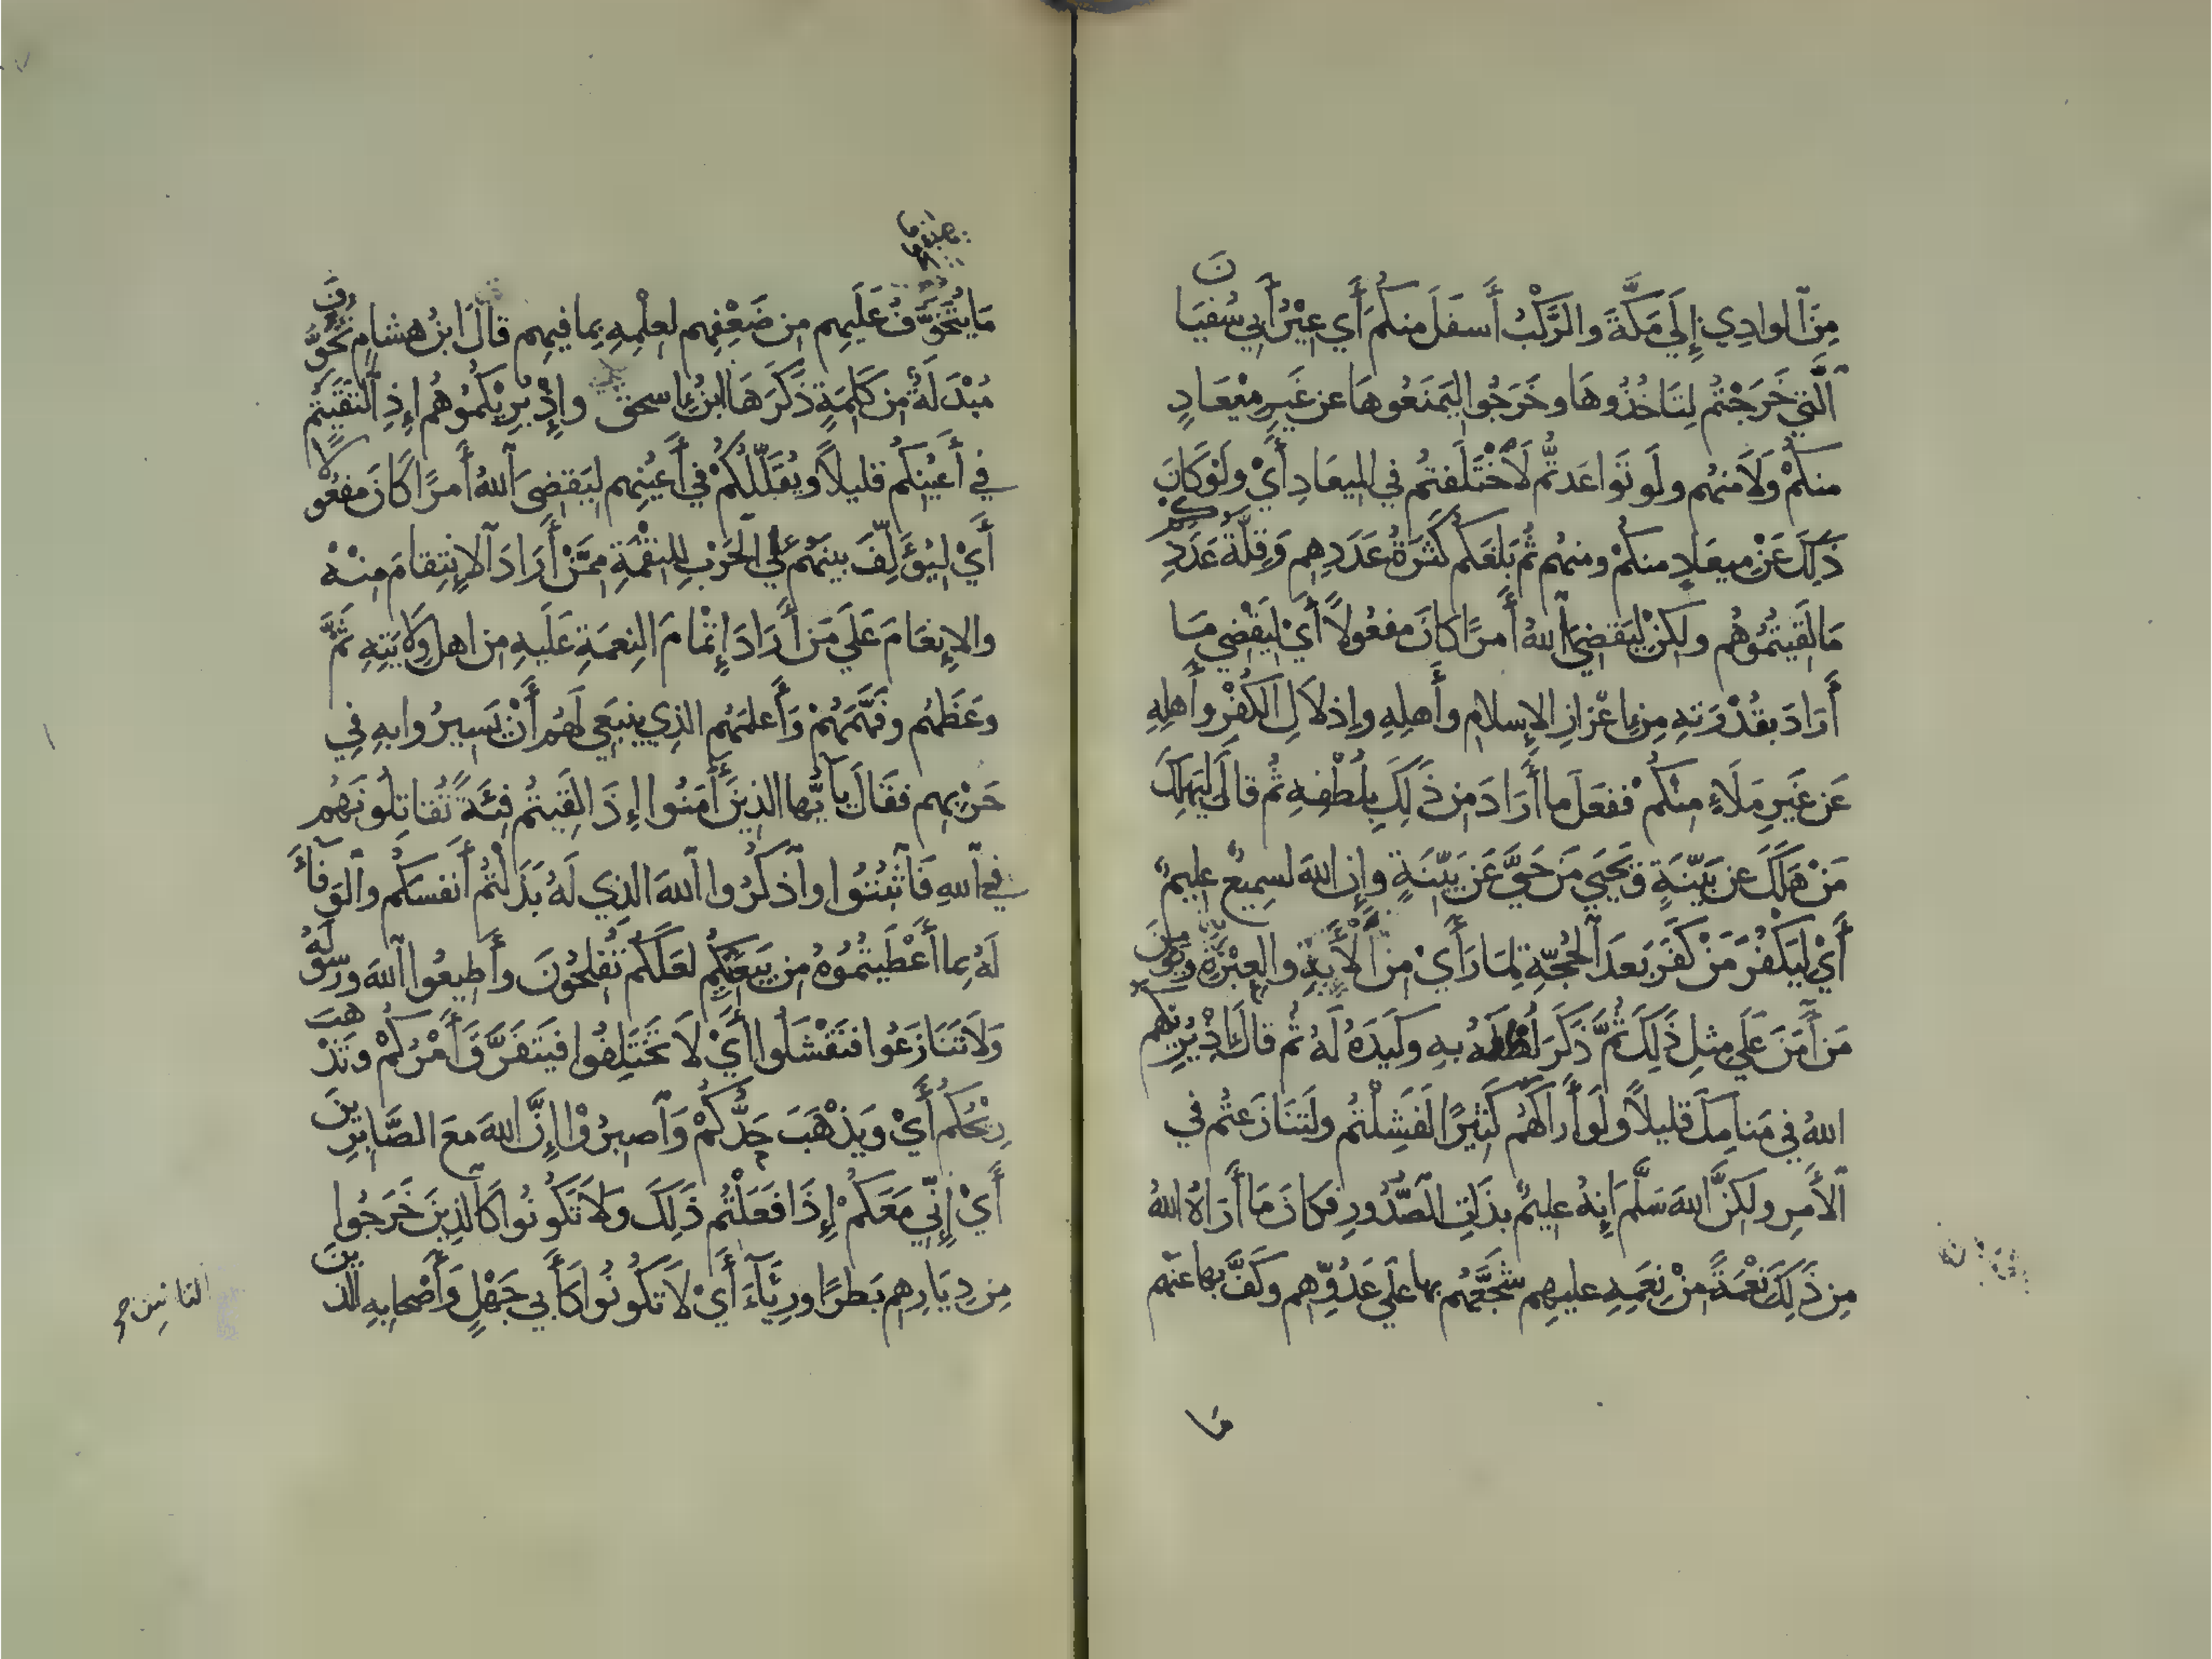 مِنَ الوادِي إِلَى مَكَّةَ والرَّكْبُ أَسفَلَ منكُم أَي عِيْرُ أَبِي سُفيَانَ
الَّتِي خَرَجْتُم لِتَاخُذُوهَا وخَرَجُوا ليَمنَعُوهَا عن غَيرِ مِيْعَادٍ
منكُمْ وَلَا منهُم ولَو تَوَاعَدتُّم لَاخْتَلَفتُم في الميعَادِ أَيْ ولَوْ كَانَ
ذَلِكَ عَنْ مِيعَادٍ منكُمْ ومنهُم ثُم بَلَغَكُم كَثرَةُ عَدَدِهِم وَقِلَّةُ عَدَدِكُم
مَا لَقَيتُمُوهُم ولكِنْ ليَقضِيَ اللهُ أَمرًا كَانَ مَفعُولًا أَيْ لِيَقْضِي مَا
أَرَادَ بقُدْرَتِهِ مِن إِعْزَازِ الإِسلام وأَهلِهِ وإِذلَالِ الكُفْرِ وأَهلِهِ
عَن غَيرِ مَلَاءٍ مِنكُمْ ففعَلَ ما أَرَادَ من ذَلِكَ بِلُطْفِهِ ثُم قالَ لِيَهلِكَ
مَنْ هَلَكَ عن بَيِّنَةٍ وَيَحيَى مَن حَيَّ عَن بَيِّنَةٍ وإِن اللهَ لسَمِيعٌ عليمٌ
أَيْ لِيَكْفُرَ مَنْ كَفَرَ بَعدَ الحُجَّةِ لِمَا رَأَيْ مِنَ الأيَةِ والعِبْرَةِ ويُومِنَ
مَن أَمَنَ عَلَي مِثلِ ذَلِكَ ثُمَّ ذَكَرَ لُطْفَهُ بِهِ وكَيدَهُ لَهُ ثُم قالَ إِذْ يُرِيكَهُم
اللهُ في مَنامِكَ قليلًا ولَو أَرَاكَهُم كَثِيرًا لَفَشِلْتُم ولَتَنَازَعتُم في
الأَمرِ ولكِنَّ اللهَ سَلَّمَ إِنهُ عليمٌ بذَاتِ الصُّدُورِ فكانَ مَا أَرَاهُ اللهُ
مِن ذَلِكَ نِعْمَةً مِنْ نِعَمِهِ عليهِم شَجَّعَهُم بها عَلَى عَدُوِّهِم وكَفَّ بها عنهُم
مَا
مَا يُتَخَوَّفُ عَلَيهِم من ضَعْفِهِم لعِلْمِهِ بِما فيهِم قالَ ابنُ هشامٍ تُخُوِّفَ
مُبْدَلَةٌ من كَلِمَةٍ ذَكَرَهَا ابنُ إِسحق وإِذْ يُرِيْكُمُوهُم إِذِ التَقَيْتُم
في أَعيُنِكُم قليلًا ويُقَلِّلُكُمْ في أَعيُنِهِم ليَقضِيَ اللهُ أَمرًا كَانَ مفعُولًا
أَيْ لِيُؤَلِّفَ بينَهُم عَلَى الحَرْبِ لِلنِقْمَةِ مِمَّنْ أَرَادَ الانتِقامَ مِنْهُ
والإِنعَامَ عَلَي مَن أَرَادَ إِتْمَامَ النِعمَةِ عَلَيهِ مِن اهلِ وِلَايَتِهِ ثُمَّ
وعَظَهُم وفَهَّمَهُمْ وَأَعلمَهُم الذِي ينبَغِي لَهُم أَنْ يَسِيرُوا بِهِ فِي
حَرْبِهِم فقَالَ يَأَيُّها الذِينَ أَمَنُوا إِذَا لَقِيتُم فِئَةً تُقاتِلُونَهُم
في اللهِ فَاثبُتُوا واذكُرُوا اللهَ الذِي لَهُ بَذَلْتُم أَنفسَكُم والوَفَاءَ
لَهُ بِما أَعْطَيتُمُوهُ مِن بَيعَتِكُم لعَلَّكُم تُفلِحُونَ وأَطِيعُوا اللهَ ورَسُولَهُ
وَلَا تَنَازَعُوا فَتَفْشَلُوا أَيْ لَا تَختَلِفُوا فيَتفَرَّقَ أَمْرُكُمْ وتَذْهَبَ
رِيْحُكُم أَيْ وَيَذْهَبَ حَدُّكُمْ وَاصبِرُوْا إِنَّ اللهَ معَ الصَّابِرِينَ
أَيْ إِنِّي مَعَكُمْ إِذَا فَعَلْتُم ذَلِكَ وَلَا تَكُونُوا كَالذِينَ خَرَجُوا
مِن دِيَارِهِم بَطَرًا ورِيَاءَ أَيْ لَا تَكُونُوا كَأَبِي جَهْلٍ وَأَصْحابِهِ الذينَ